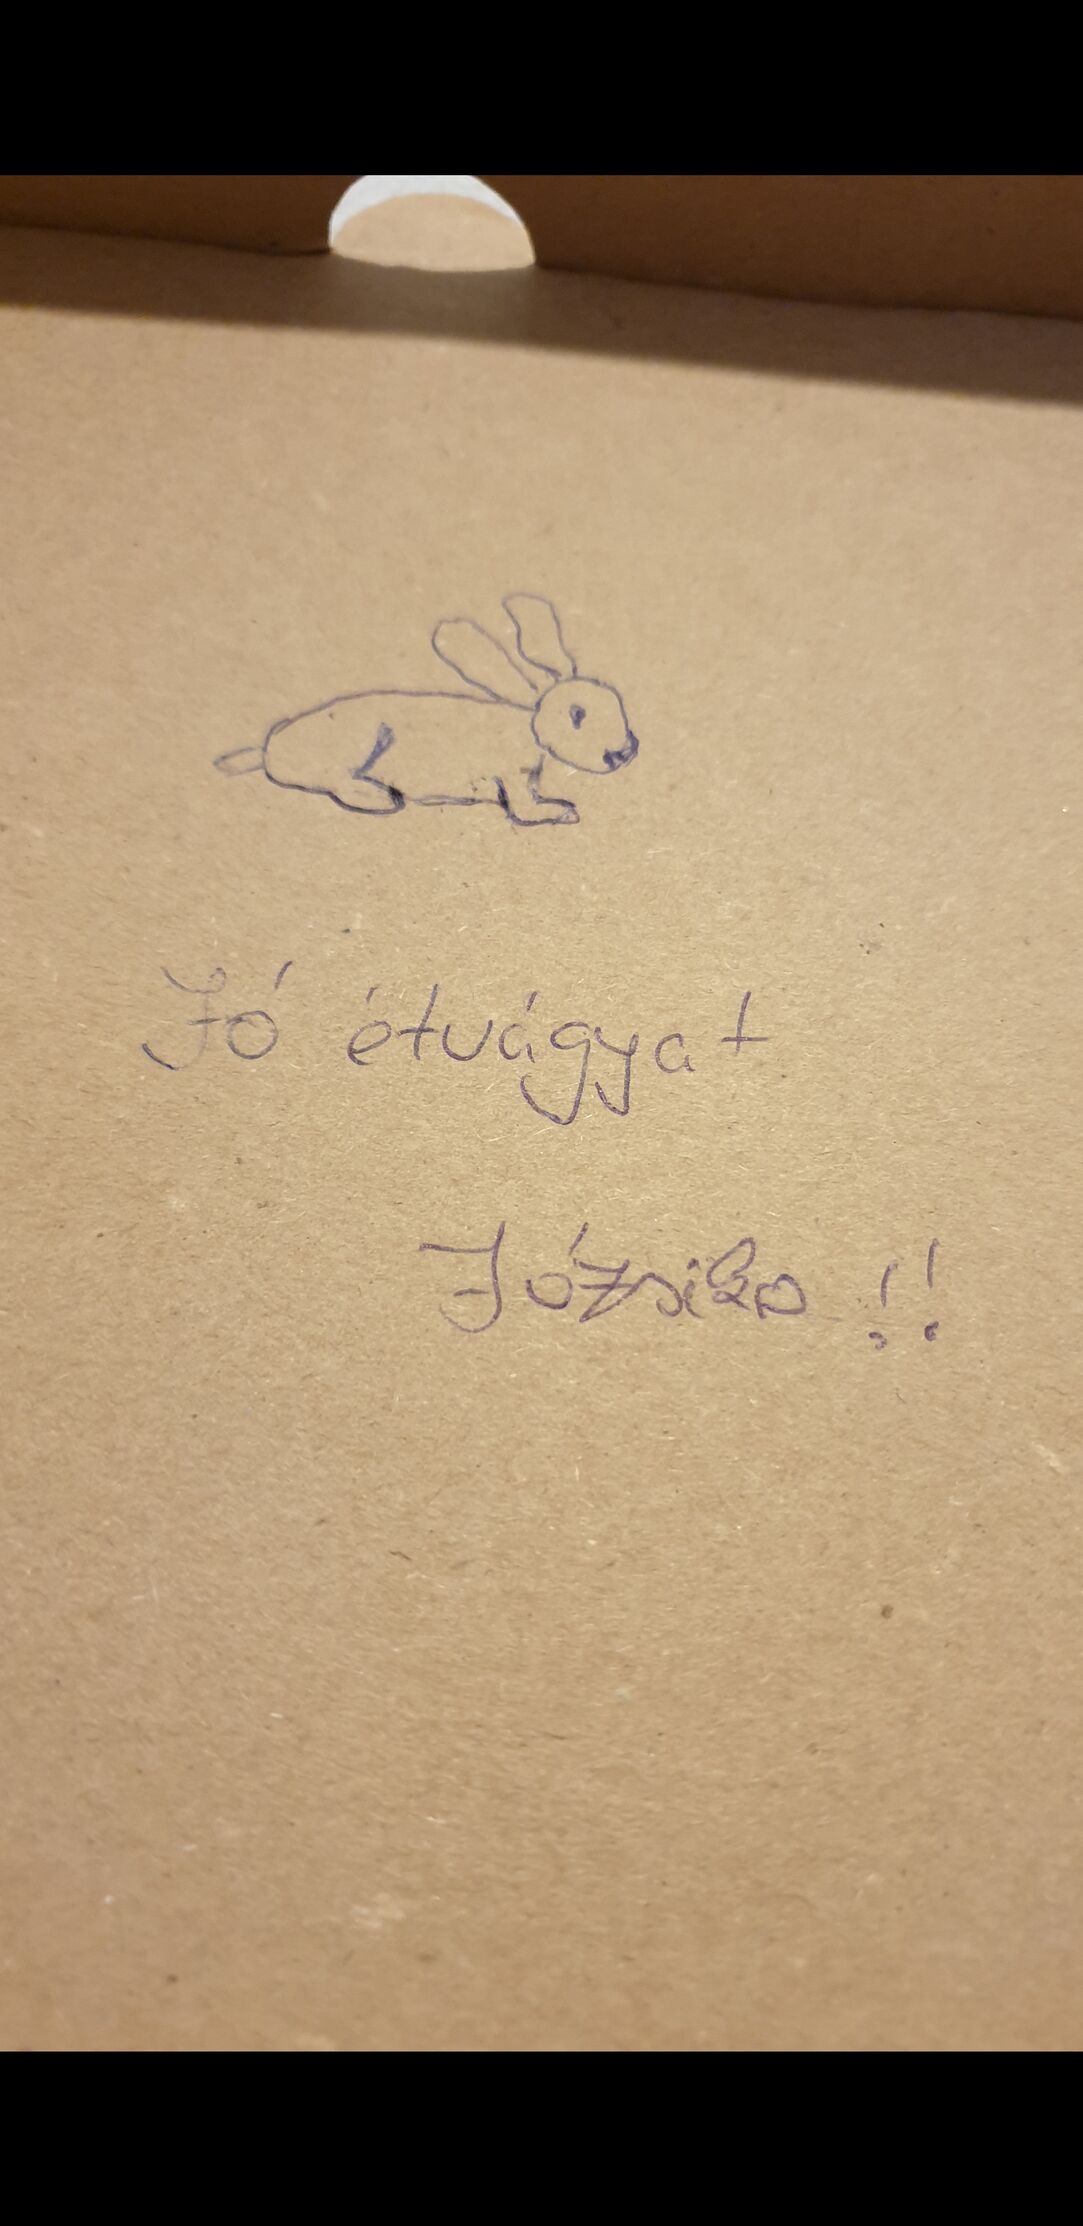 Jó étvágyat
Józsiko !!